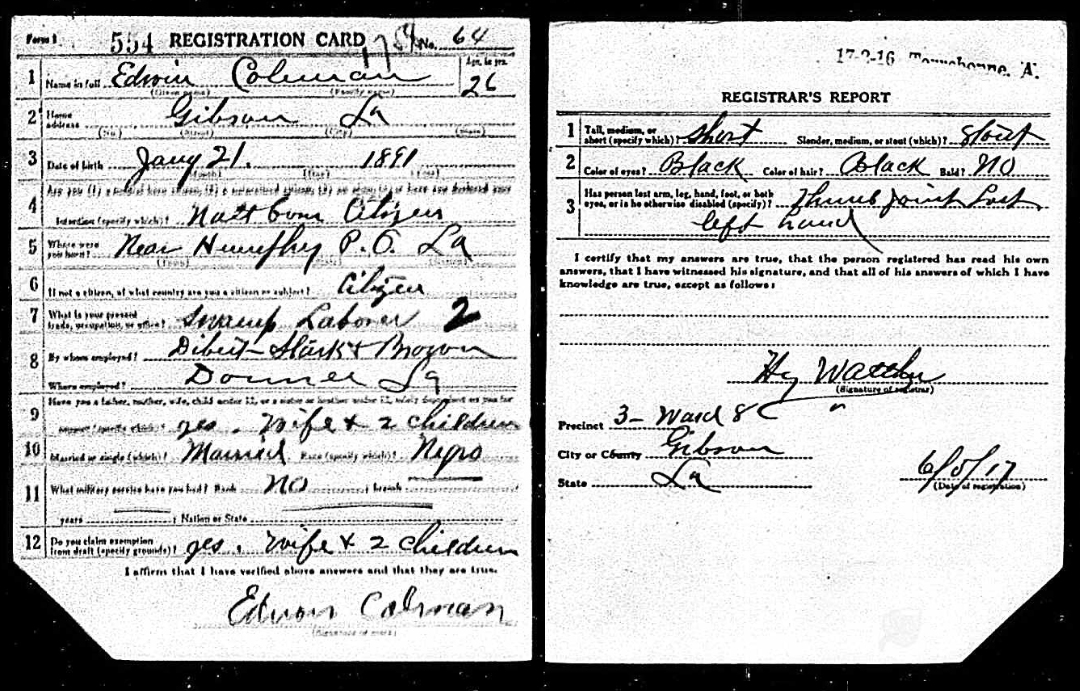 Form 1 554 REGISTRATION CARD No. 64
1 Name in full Edwin Coleman Age, in yrs. 26
(Given name) (Family name)
2 Home address Gibson La
(No.) (Street) (City) (State)
3 Date of birth Jany 21. 1891
(Month) (Day) (Year)
4 Are you (1) a natural born citizen, (2) a naturalized citizen, (3) an alien, (4) or have you declared your
intention (specify which)? Natt born Citizen
5 Where were you born? Near Humphry P. O. La
6 If not a citizen, of what country are you a citizen or subject? Citizen
7 What is your present trade, occupation, or office? Swamp Laborer 2
8 By whom employed? Dibert Stark & Brown
Where employed? Donner La
9 Have you a father, mother, wife, child under 12, or a sister or brother under 12, solely dependent on you for
support (specify which)? yes. Wife & 2 children
10 Married or single (which)? Married Race (specify which)? Negro
11 What military service have you had? Rank NO ; branch
years ; Nation or State
12 Do you claim exemption from draft (specify grounds)? yes. Wife & 2 children
I affirm that I have verified above answers and that they are true.
Edwin Colman
(Signature or mark)
17-2-16 Terrebonne. A.
REGISTRAR'S REPORT
1 Tall, medium, or short (specify which)? Short Slender, medium, or stout (which)? Stout
2 Color of eyes? Black Color of hair? Black Bald? NO
3 Has person lost arm, leg, hand, foot, or both eyes, or is he otherwise disabled (specify)? Thumb Joint Lost
left hand
I certify that my answers are true, that the person registered has read his own
answers, that I have witnessed his signature, and that all of his answers of which I have
knowledge are true, except as follows:
Hy
(Signature of registrar)
Precinct 3- Ward 8
City or County Gibson
State La
6/5/17
(Date of registration)